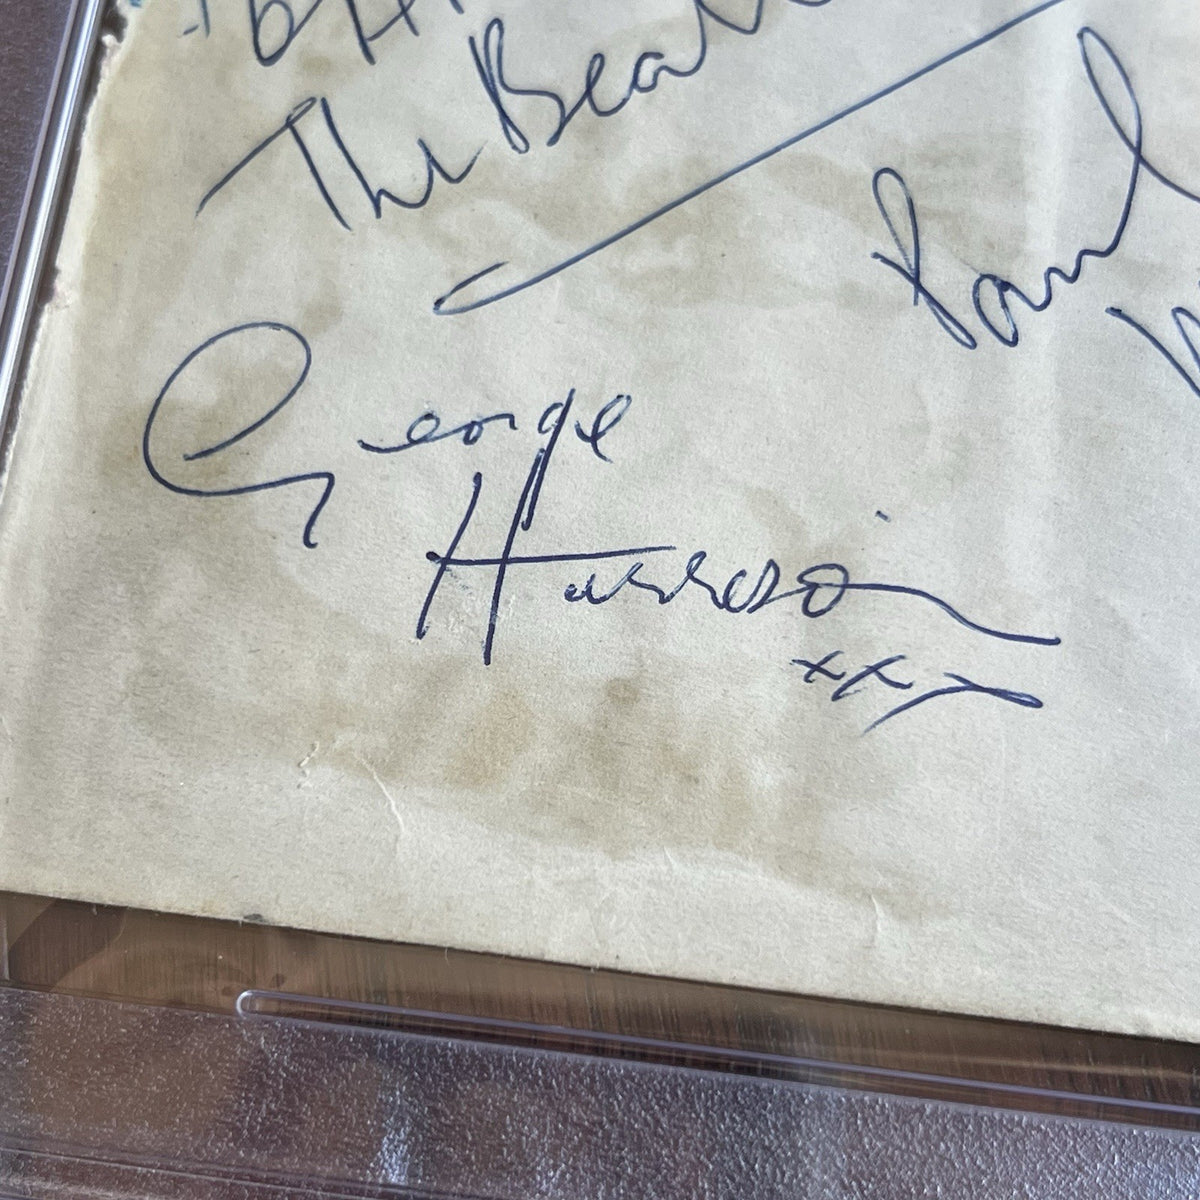 The Beat
Paul
George
Harrison
xxx